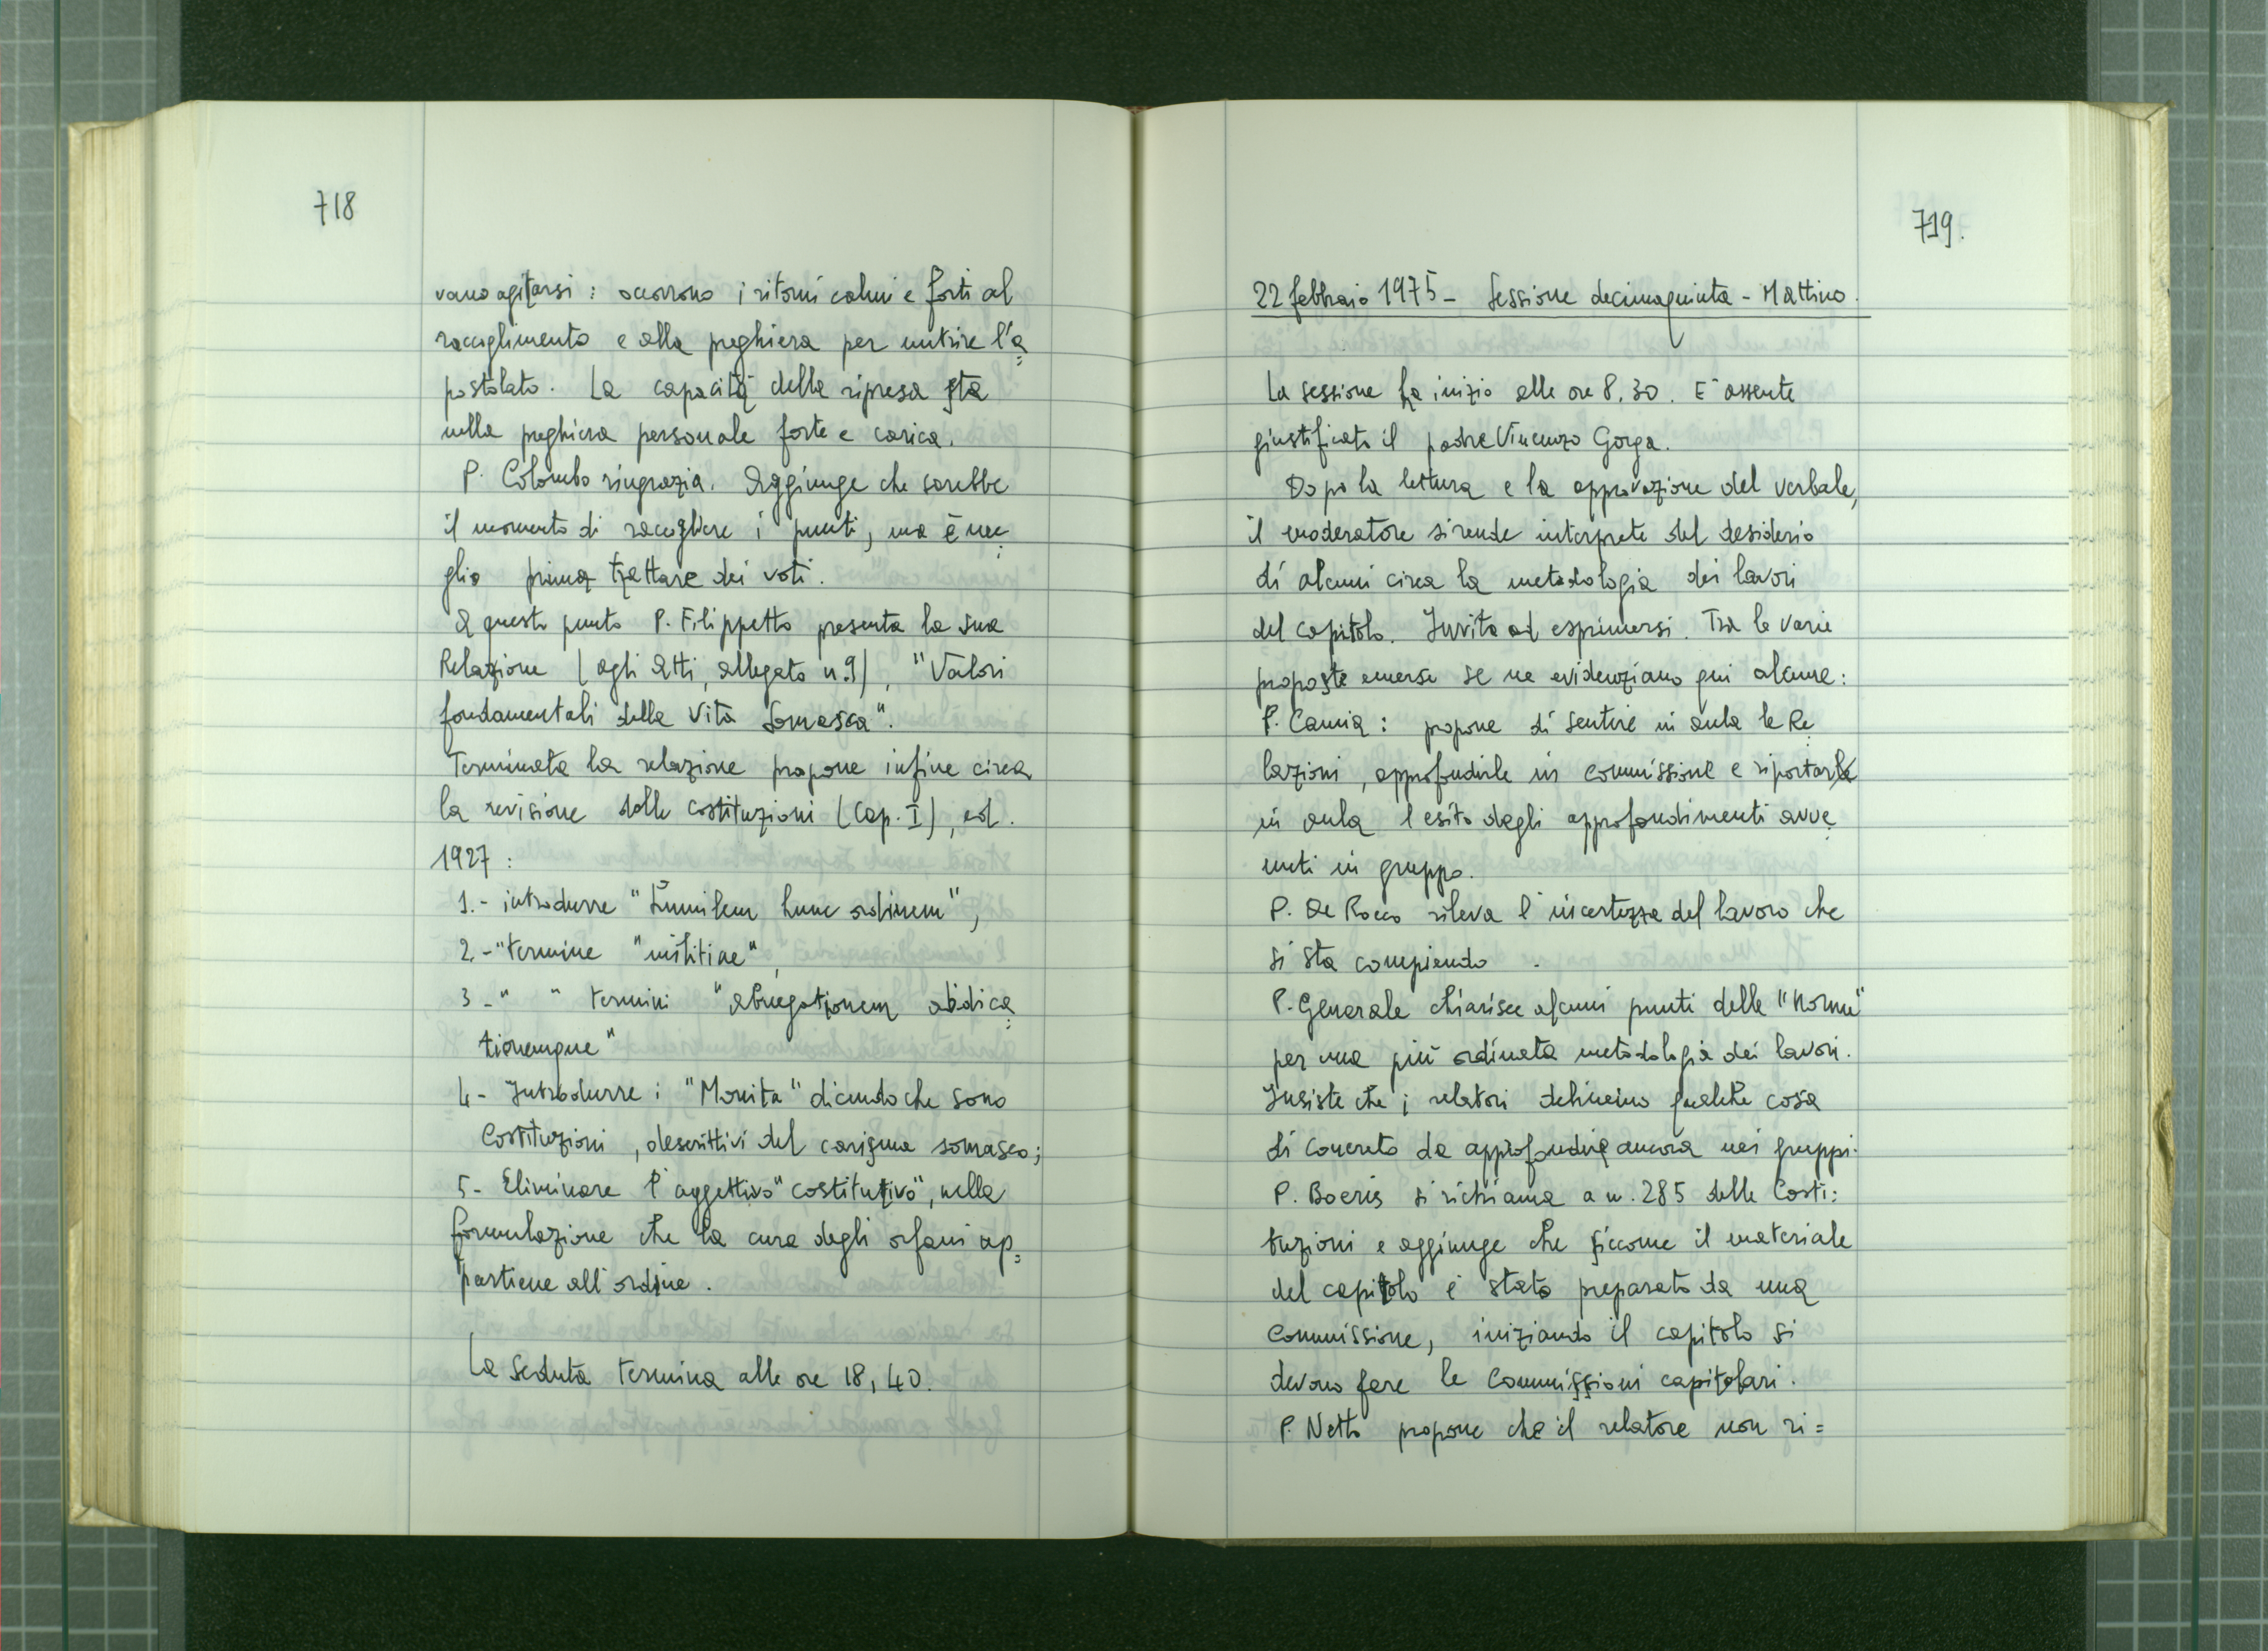 718
vano agitarsi : occorrono i ritorni calmi e forti al
raccoglimento e alla preghiera per nutrire l'a=
postolato. La capacità della ripresa sta
nella preghiera personale forte e carica.
P. Colombo ringrazia. Aggiunge che sarebbe
il momento di raccogliere i punti, ma è me=
glio prima trattare dei voti.
A questo punto P. Filippetto presenta la sua
Relazione (agli Atti, allegato n.9), "Valori
fondamentali della vita Somasca".
Terminata la relazione propone infine circa
la revisione delle costituzioni (cap. I), ed.
1927 :
1.- introdurre "humilem hunc ordinem",
2.- "termine "militiae",
3 - " " termini "abnegationem abdica=
tionemque"
4 - Introdurre i "Monita" dicendo che sono
Costituzioni, descrittivi del carisma somasco;
5 - Eliminare l'aggettivo "costitutivo", nella
formulazione che la cura degli orfani ap=
partiene all'ordine.
La seduta termina alle ore 18,40.
719.
22 febbraio 1975 - Sessione decimaquinta - Mattino.
La sessione ha inizio alle ore 8,30. E' assente
giustificato il padre Vincenzo Gorga.
Dopo la lettura e la approvazione del verbale,
il moderatore si rende interprete del desiderio
di alcuni circa la metodologia dei lavori
del capitolo. Invita ad esprimersi. Tra le varie
proposte emerse se ne evidenziano qui alcune:
P. Camia : propone di sentire in aula le Re=
lazioni, approfondirle in commissione e riportare
in aula l'esito degli approfondimenti avve=
nuti in gruppo.
P. De Rocco rileva l'incertezza del lavoro che
si sta compiendo.
P. Generale chiarisce alcuni punti delle "Norme"
per una più ordinata metodologia dei lavori.
Insiste che i relatori delineino qualche cosa
di concreto da approfondire ancora nei gruppi.
P. Boeris si richiama a n. 285 delle Costi=
tuzioni e aggiunge che siccome il materiale
del capitolo è stato preparato da una
Commissione, iniziando il capitolo si
devono fare le Commissioni capitolari.
P. Netto propone che il relatore non ri=